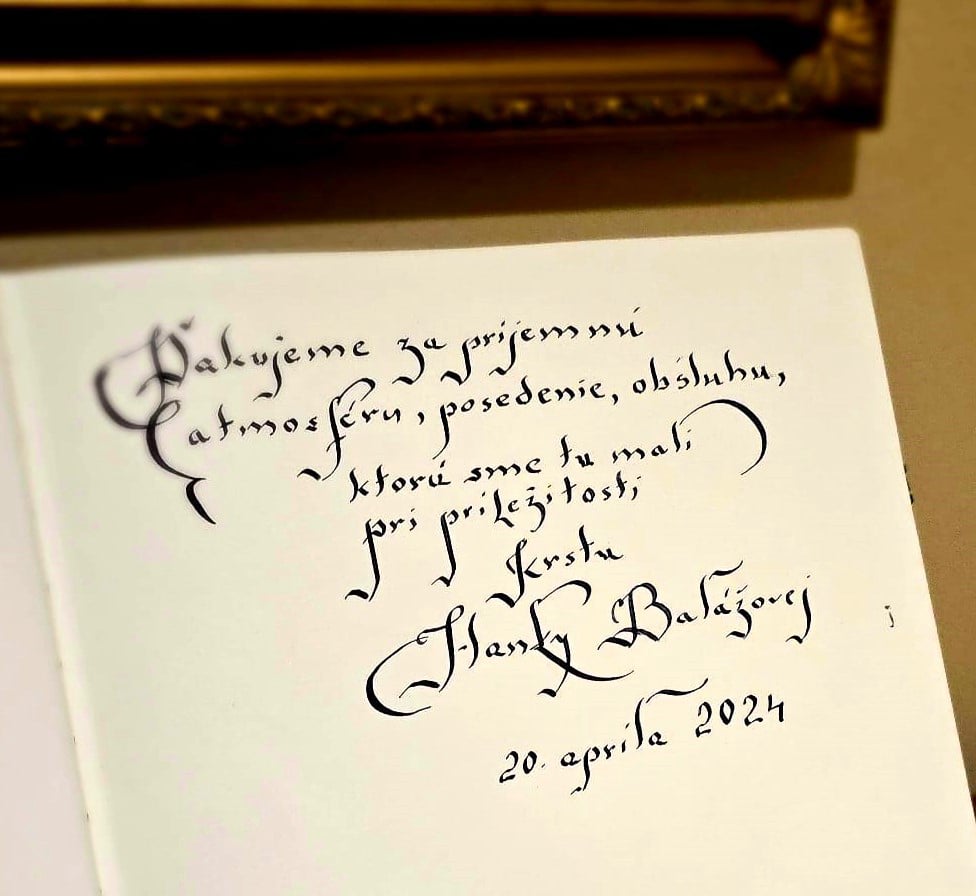 Ďakujeme za príjemnú
atmosféru, posedenie, obsluhu,
ktorú sme tu mali
pri príležitosti
krstu
Hanky Balážovej
20. apríla 2024